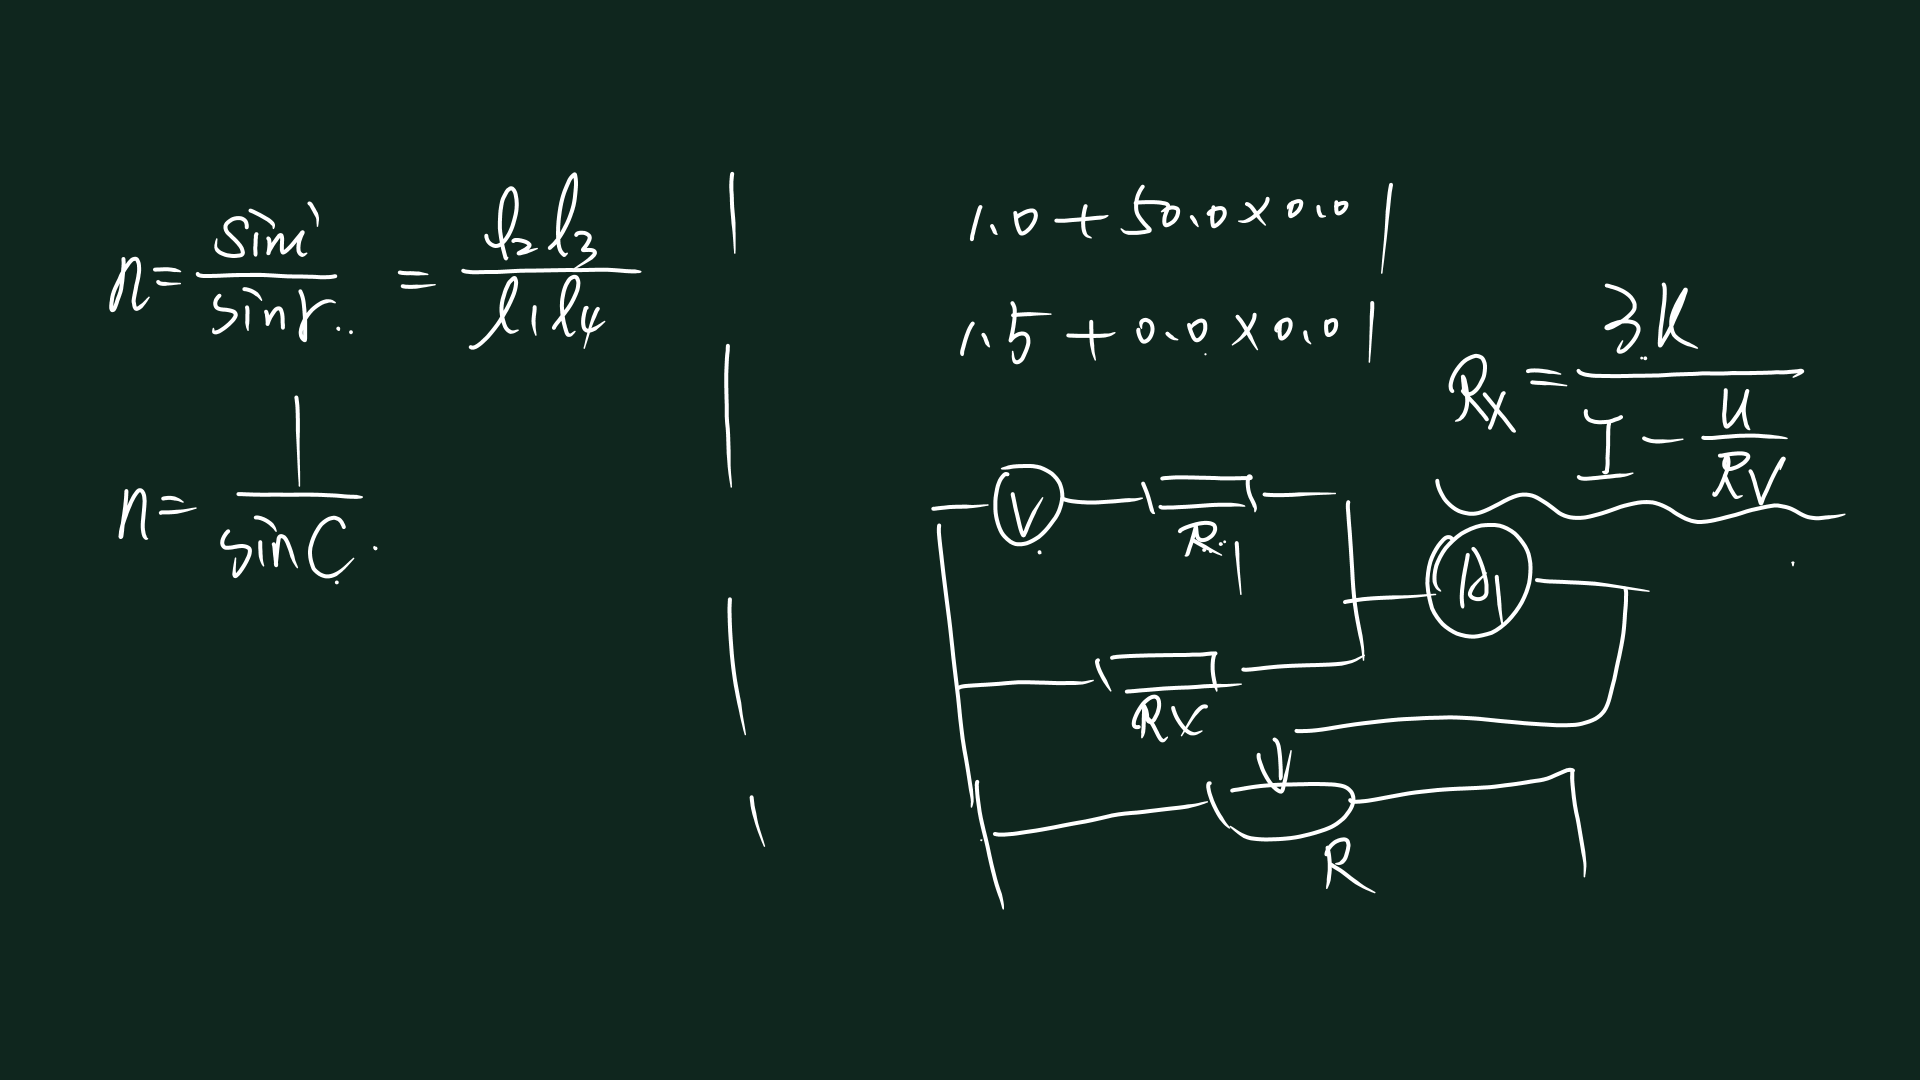 n = sin i / sin r = l₂l₃ / l₁l₄
n = 1 / sin C
1.0 + 50.0 × 0.01
1.5 + 0.0 × 0.01
Rx = 3U / (I - U/RV)
V
R1
A1
Rx
R